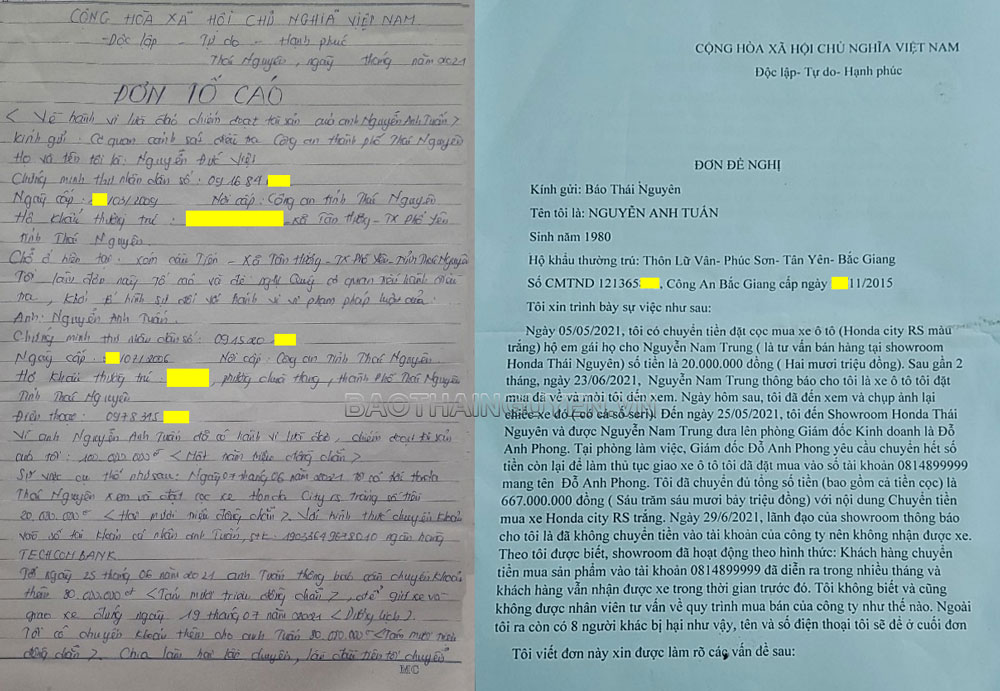 CỘNG HÒA XÃ HỘI CHỦ NGHĨA VIỆT NAM
-Độc lập - Tự do - Hạnh phúc
Thái Nguyên, ngày tháng năm 2021
ĐƠN TỐ CÁO
< Về hành vi lừa đảo chiếm đoạt tài sản của anh Nguyễn Anh Tuấn >
Kính gửi: Cơ quan cảnh sát điều tra Công an thành phố Thái Nguyên
Họ và tên tôi là: Nguyễn Đức Việt
Chứng minh thư nhân dân số: 091684
Ngày cấp: /03/2009 Nơi cấp: Công an tỉnh Thái Nguyên
Hộ khẩu thường trú: xã Tân Hương - TX Phổ Yên
tỉnh Thái Nguyên
Chỗ ở hiện tại: xóm Tiên - xã Tân Hương - TX Phổ Yên - Tỉnh Thái Nguyên
Tôi làm đơn này tố cáo và đề nghị Quý cơ quan tiến hành điều
tra, khởi tố hình sự đối với hành vi vi phạm pháp luật của:
Anh: Nguyễn Anh Tuấn.
Chứng minh thư nhân dân số: 091520
Ngày cấp: /02/2006 Nơi cấp: Công an Tỉnh Thái Nguyên.
Hộ khẩu thường trú: , phường Hang, thành phố Thái Nguyên
Tỉnh Thái Nguyên
Điện thoại: 0978315
Vì anh Nguyễn Anh Tuấn đã có hành vi lừa đảo, chiếm đoạt tài sản
của tôi: 100.000.000đ < Một trăm triệu đồng chẵn >
Sự việc cụ thể như sau: Ngày 07 tháng 06 năm 2021 Tôi có tới Honda
Thái Nguyên xem và đặt cọc xe Honda City RS trắng số tiền
20.000.000đ < Hai mươi triệu đồng chẵn >. Với hình thức chuyển khoản
vào số tài khoản cá nhân anh Tuấn, stk: 19036649678010 ngân hàng
TECHCOMBANK
Tới ngày 25 tháng 06 năm 2021 anh Tuấn thông báo cần chuyển khoản
thêm 80.000.000đ < Tám mươi triệu đồng chẵn >, để giữ xe và
giao xe đúng ngày 19 tháng 07 năm 2021 < Dương lịch >.
Tôi có chuyển khoản thêm cho anh Tuấn 80.000.000đ < Tám mươi triệu
đồng chẵn >. Chia làm hai lần chuyển, lần đầu tiên tôi chuyển
CỘNG HÒA XÃ HỘI CHỦ NGHĨA VIỆT NAM
Độc lập- Tự do- Hạnh phúc
ĐƠN ĐỀ NGHỊ
Kính gửi: Báo Thái Nguyên
Tên tôi là: NGUYỄN ANH TUẤN
Sinh năm 1980
Hộ khẩu thường trú: Thôn Lữ Vân- Phúc Sơn- Tân Yên- Bắc Giang
Số CMTND 121365 , Công An Bắc Giang cấp ngày 11/2015
Tôi xin trình bày sự việc như sau:
Ngày 05/05/2021, tôi có chuyển tiền đặt cọc mua xe ô tô (Honda city RS màu
trắng) hộ em gái họ cho Nguyễn Nam Trung ( là tư vấn bán hàng tại showroom
Honda Thái Nguyên) số tiền là 20.000.000 đồng ( Hai mươi triệu đồng). Sau gần 2
tháng, ngày 23/06/2021, Nguyễn Nam Trung thông báo cho tôi là xe ô tô tôi đặt
mua đã về và mời tôi đến xem. Ngày hôm sau, tôi đã đến xem và chụp ảnh lại
chiếc xe đó (có cả số seri). Đến ngày 25/05/2021, tôi đến Showroom Honda Thái
Nguyên và được Nguyễn Nam Trung đưa lên phòng Giám đốc Kinh doanh là Đỗ
Anh Phong. Tại phòng làm việc, Giám đốc Đỗ Anh Phong yêu cầu chuyển hết số
tiền còn lại để làm thủ tục giao xe ô tô tôi đã đặt mua vào số tài khoản 0814899999
mang tên Đỗ Anh Phong. Tôi đã chuyển đủ tổng số tiền (bao gồm cả tiền cọc) là
667.000.000 đồng ( Sáu trăm sáu mươi bảy triệu đồng) với nội dung Chuyển tiền
mua xe Honda city RS trắng. Ngày 29/6/2021, lãnh đạo của showroom thông báo
cho tôi là đã không chuyển tiền vào tài khoản của công ty nên không nhận được xe.
Theo tôi được biết, showroom đã hoạt động theo hình thức: Khách hàng chuyển
tiền mua sản phẩm vào tài khoản 0814899999 đã diễn ra trong nhiều tháng và
khách hàng vẫn nhận được xe trong thời gian trước đó. Tôi không biết và cũng
không được nhân viên tư vấn về quy trình mua bán của công ty như thế nào. Ngoài
tôi ra còn có 8 người khác bị hại như vậy, tên và số điện thoại tôi sẽ để ở cuối đơn
Tôi viết đơn này xin được làm rõ các vấn đề sau:
BAOTHAINGUYEN.VN
MC